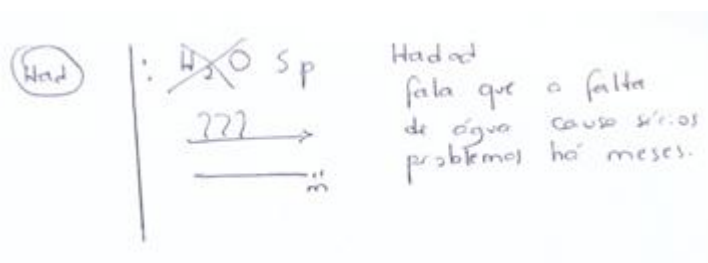 Had
: H₂O Sp
???
m̈
Hadad
fala que a falta
de água causa sérios
problemas há meses.